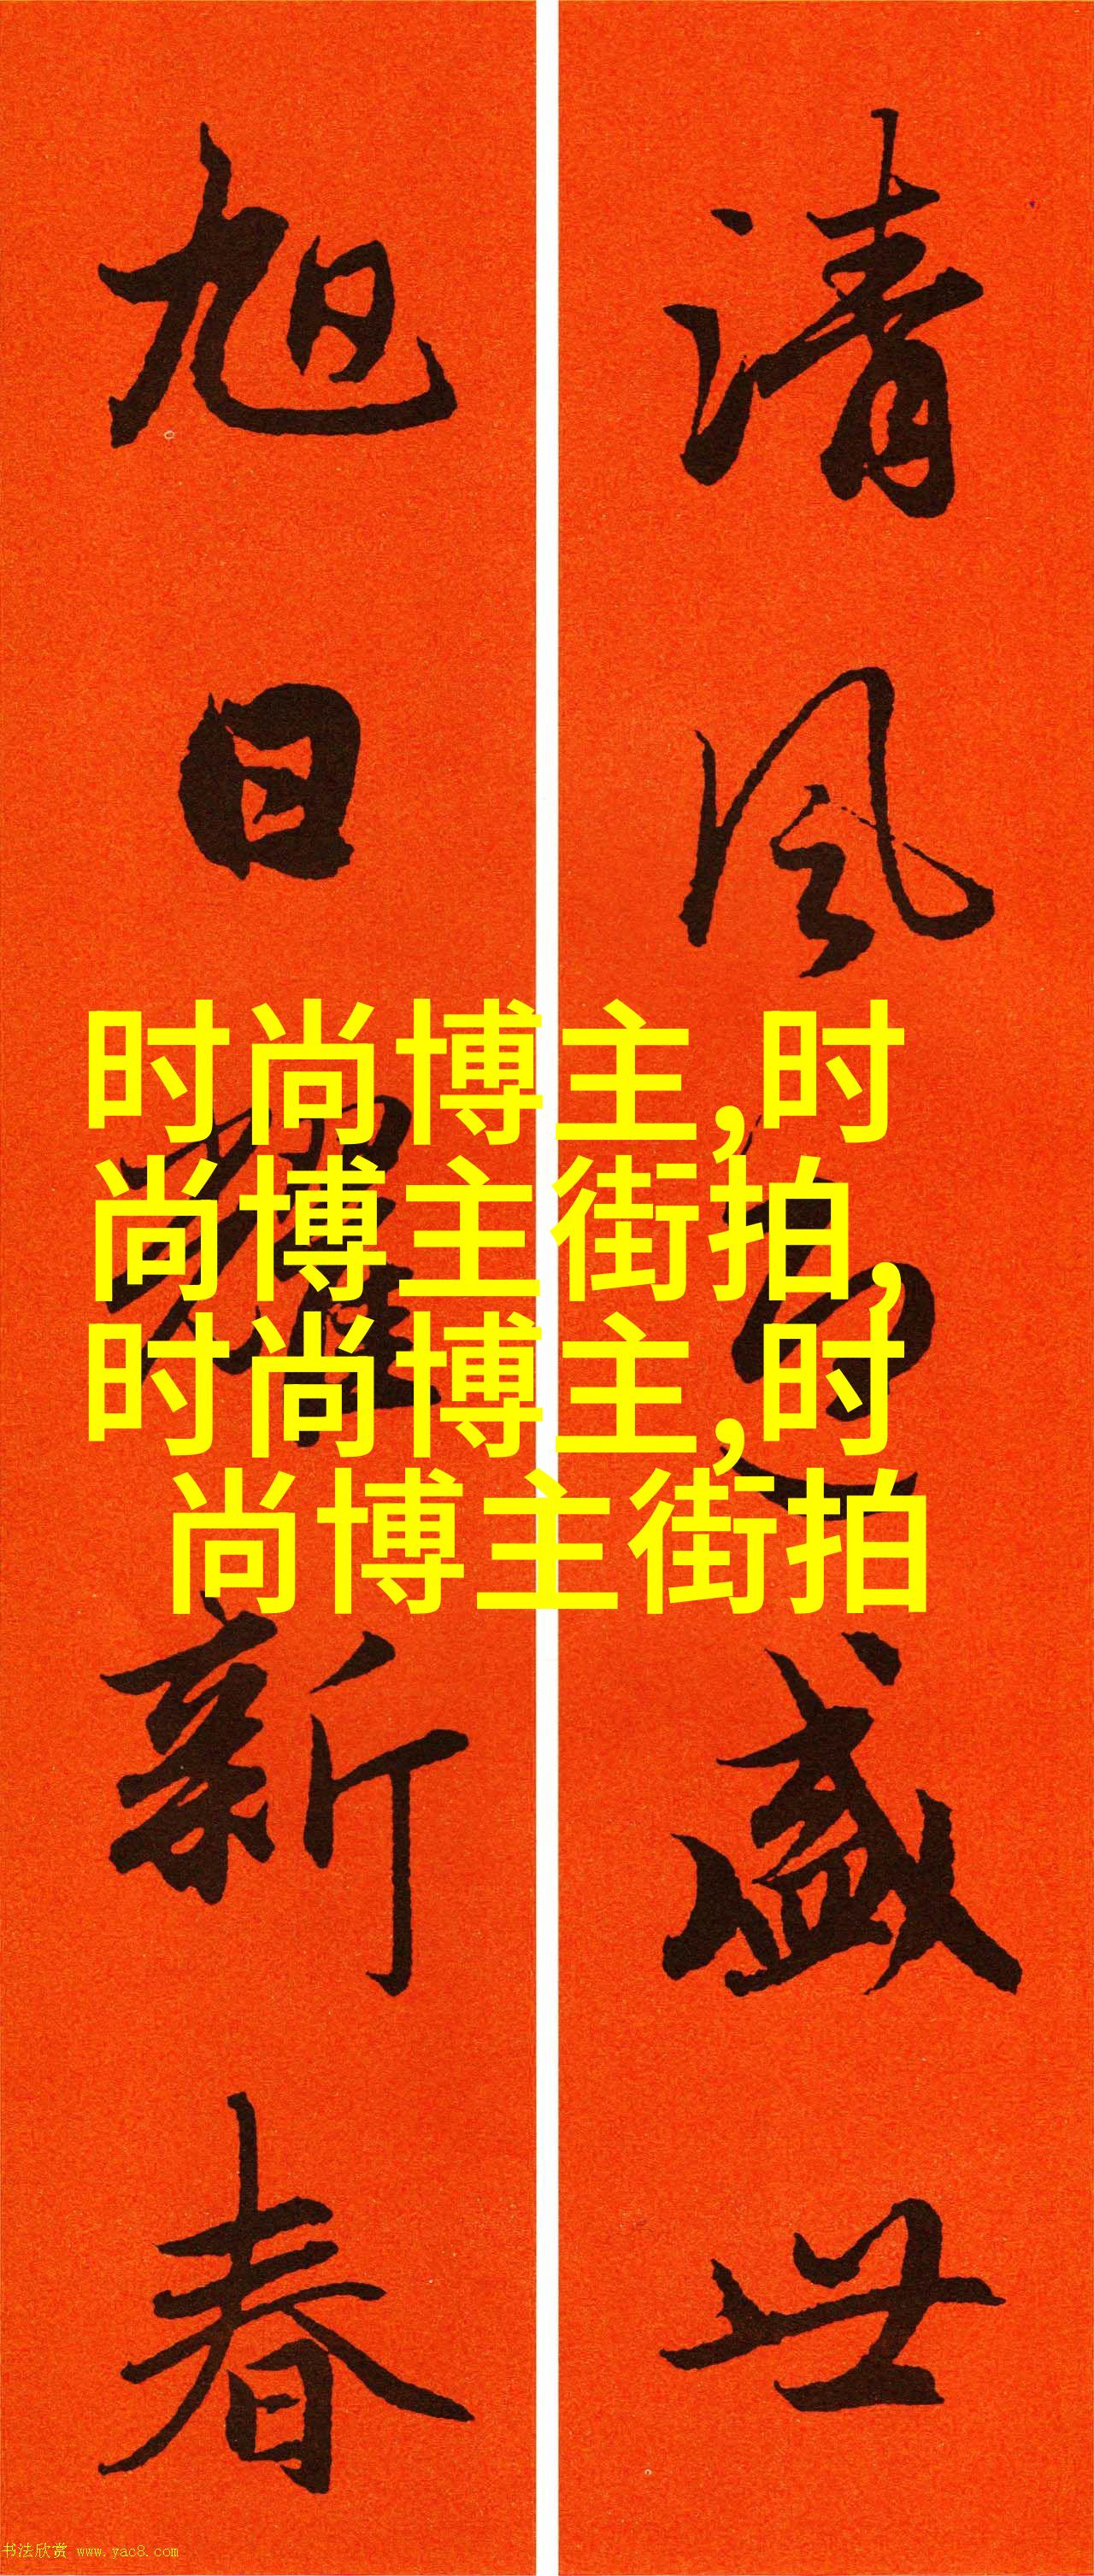 清风盛世
旭日耀新春
时尚博主,时
尚博主街拍,
时尚博主,时
尚博主街拍
书法欣赏 www.yac8.com